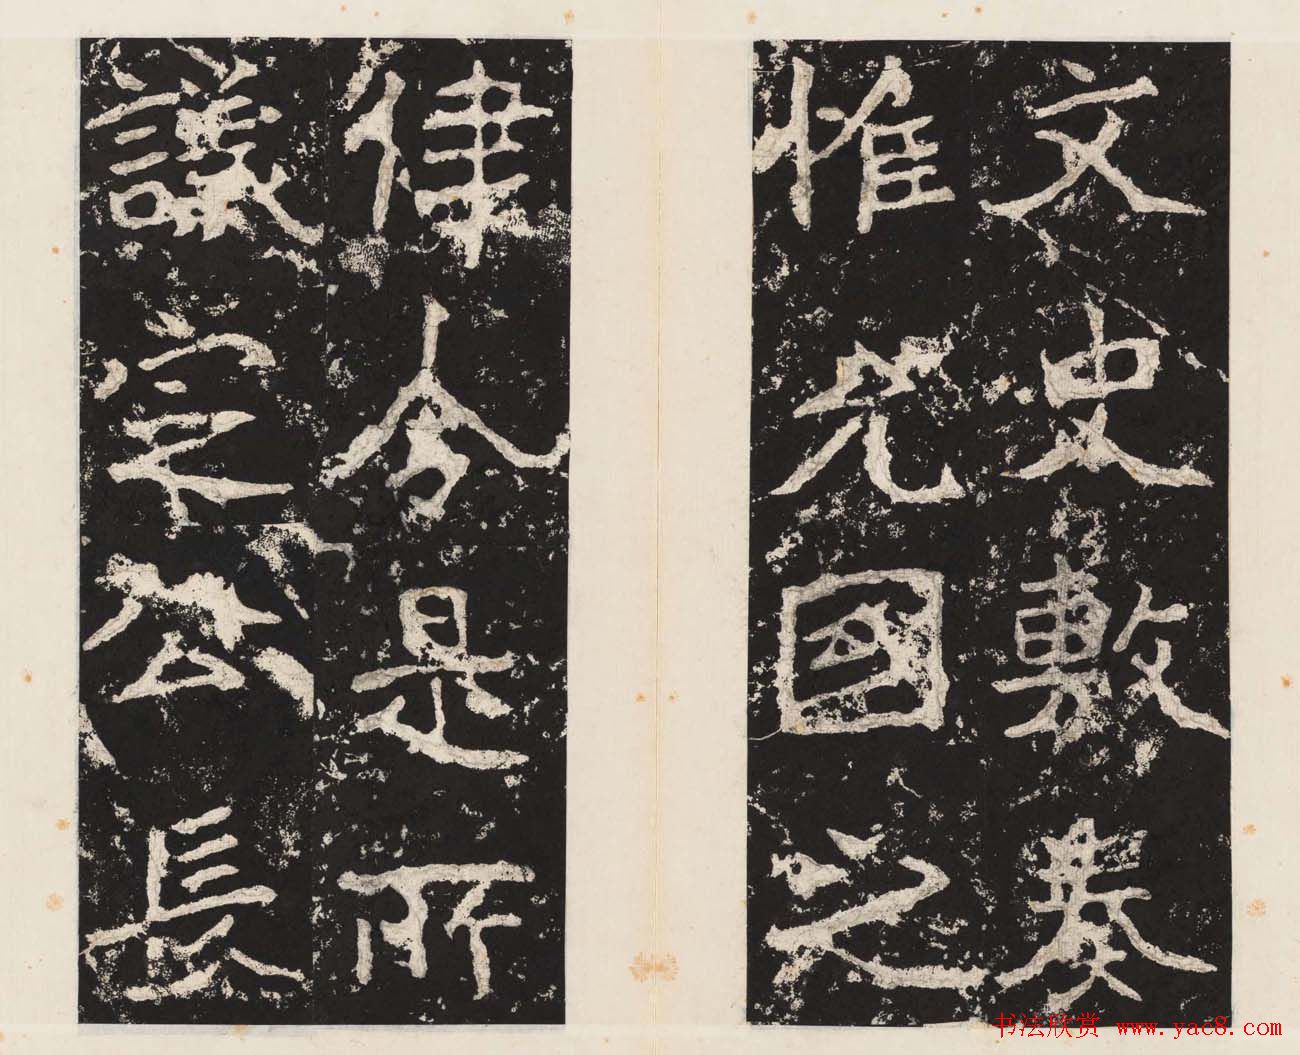 文史敷奏
惟允國之
律令是所
議定公長
书法欣赏 www.yac8.com